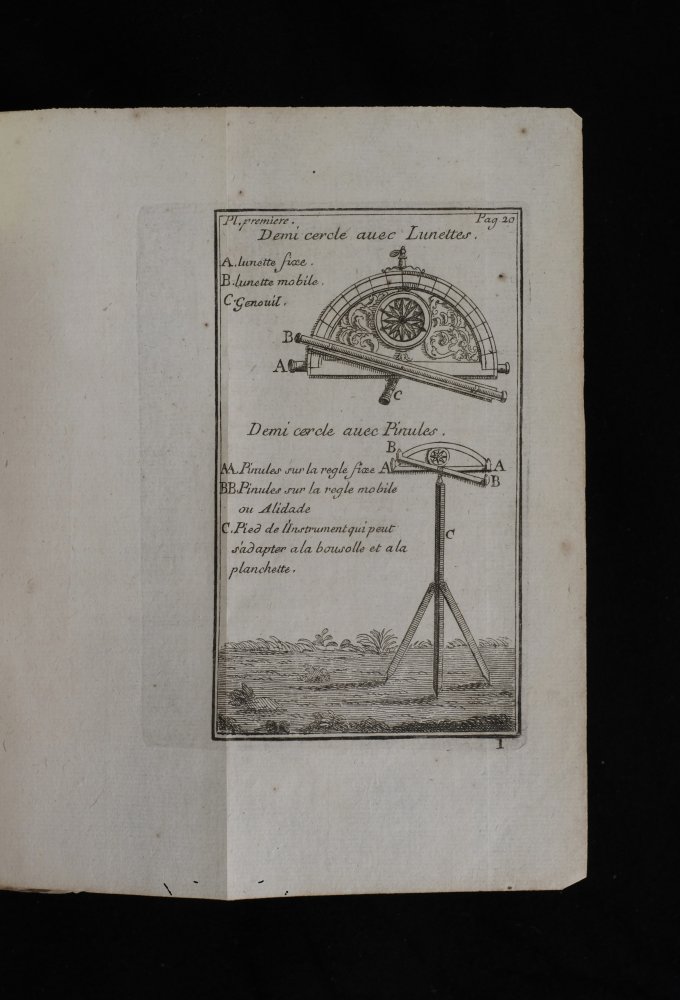 Pl. premiere. Pag. 20
Demi cercle auec Lunettes.
A. lunette fixe.
B. lunette mobile.
C. Genouil.
B
A
C
Demi cercle auec Pinules.
AA. Pinules sur la regle fixe
BB. Pinules sur la regle mobile
ou Alidade
C. Pied de l'Instrument qui peut
s'adapter a la bousolle et a la
planchette.
B
A A
B
C
1